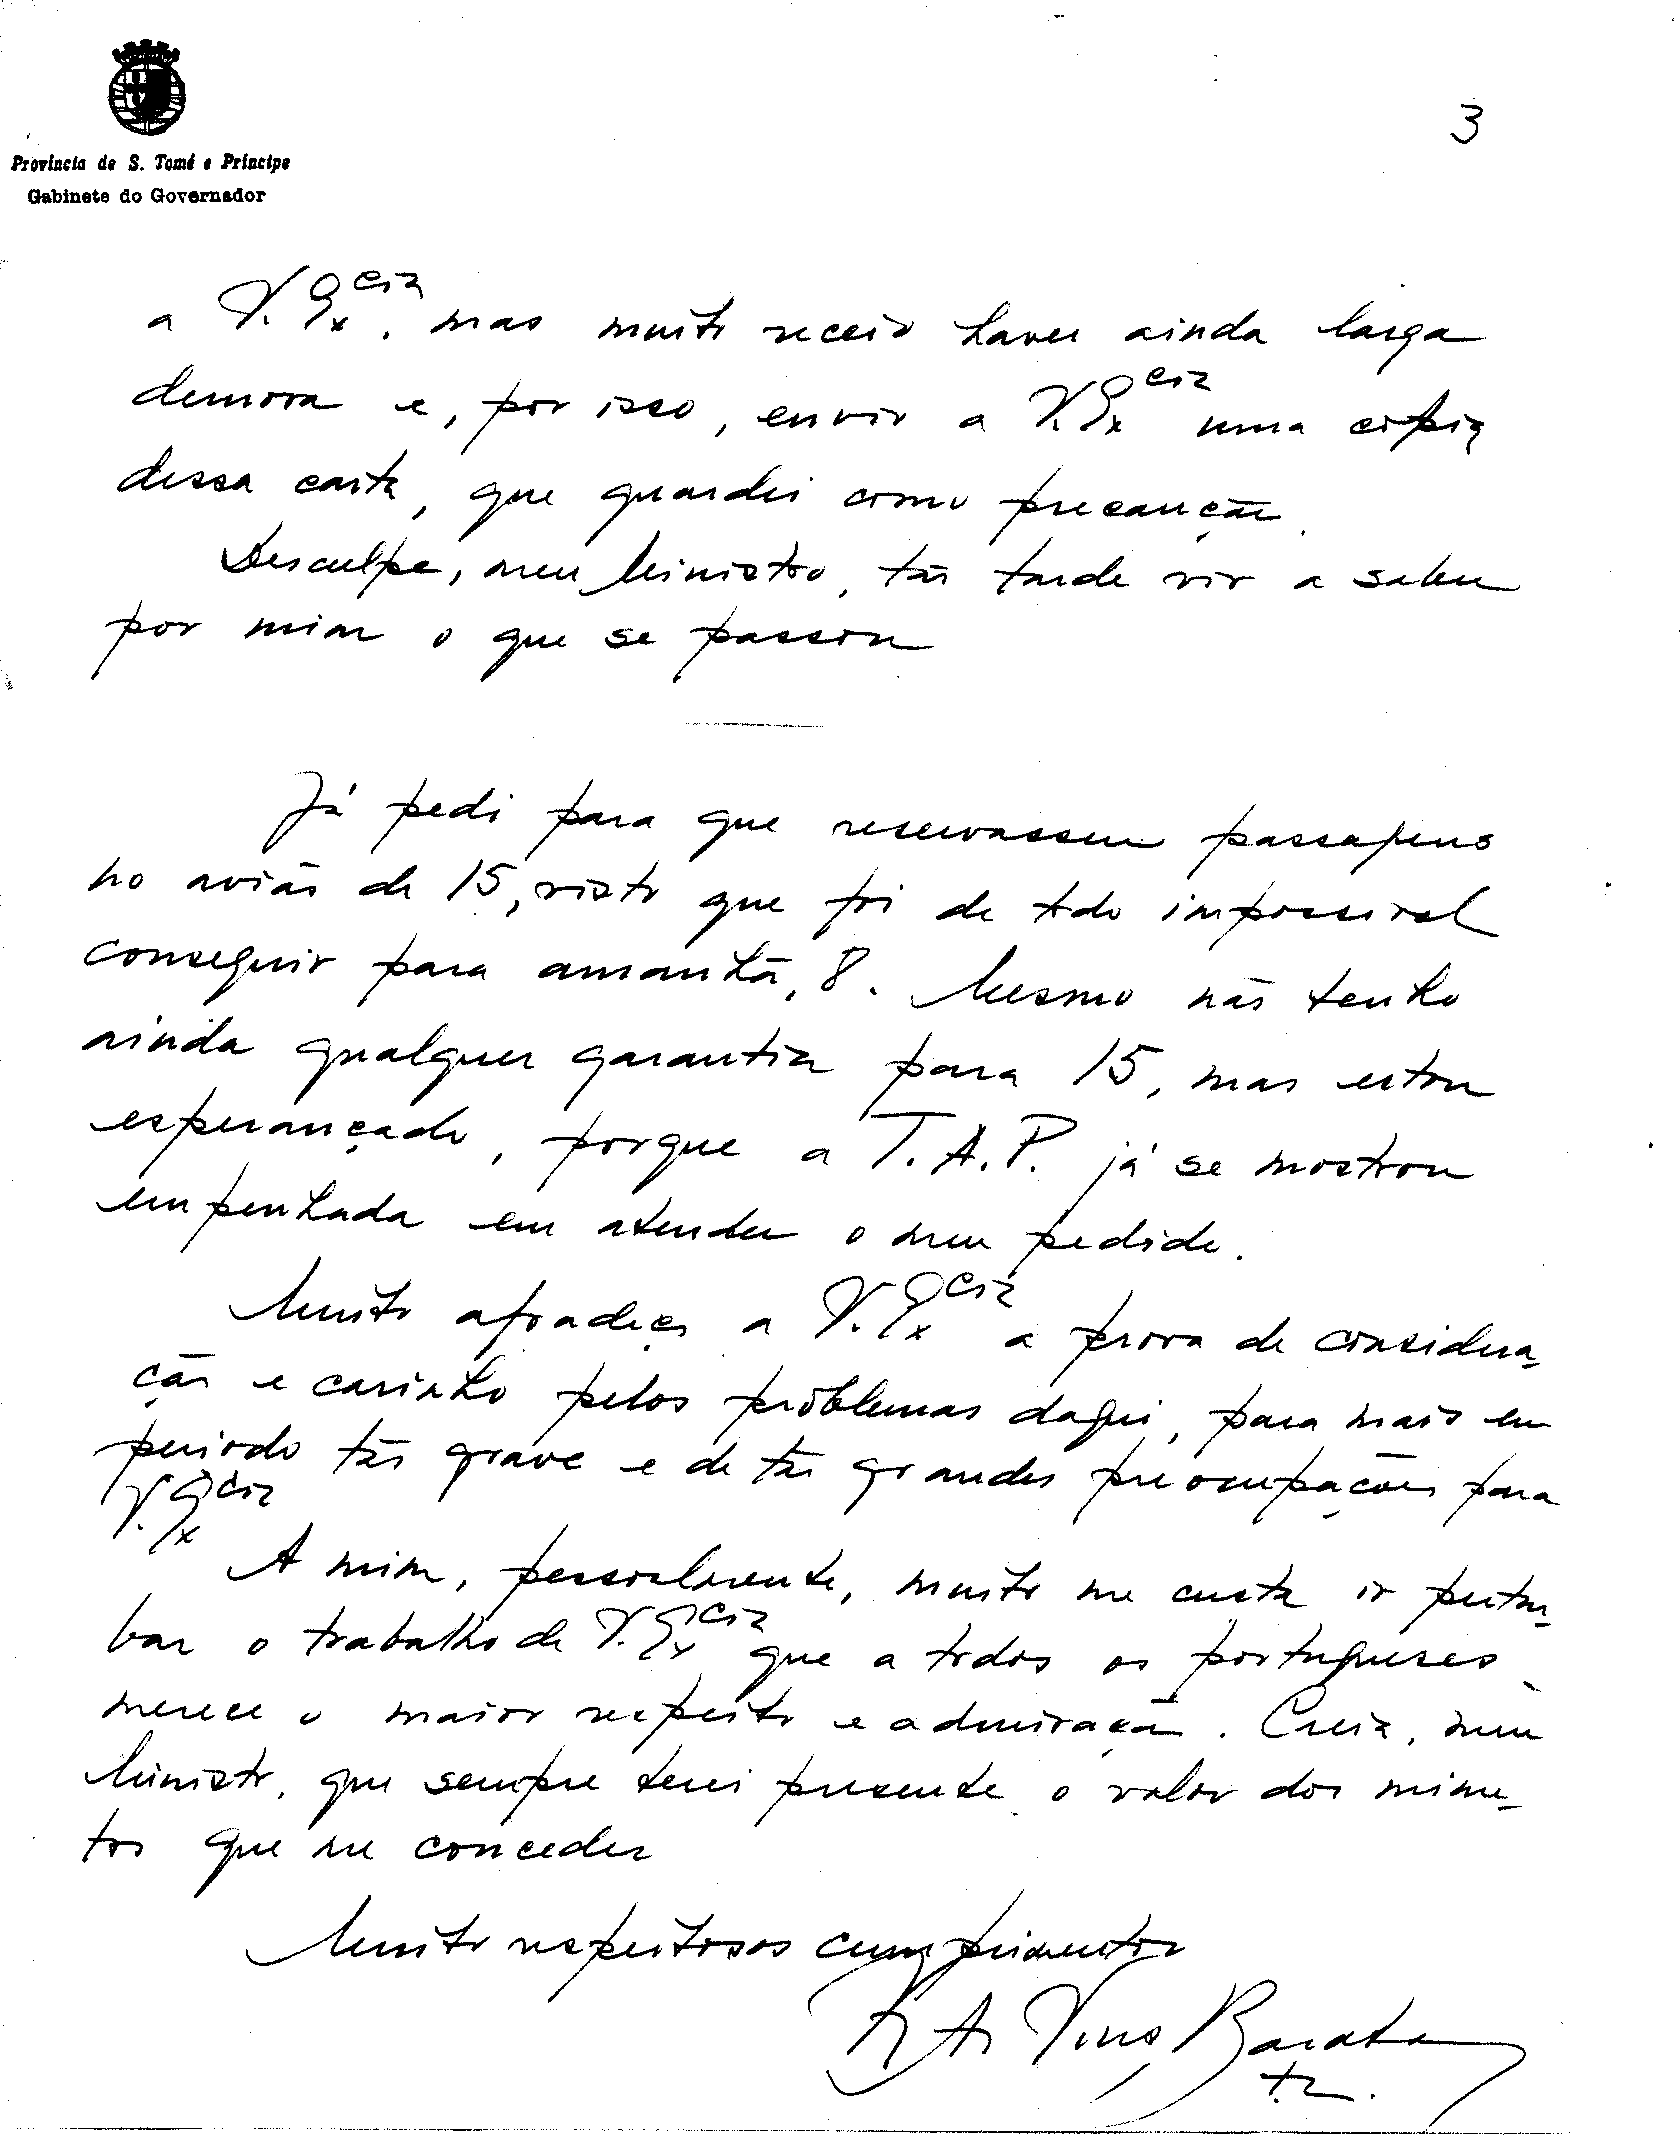 Província de S. Tomé e Príncipe
Gabinete do Governador
3
a V. Excia, mas muito receio haver ainda larga
demora e, por isso, envio a V. Excia uma cópia
dessa carta, que guardei como precaução.
Desculpe, meu Ministro, tão tarde vir a saber
por mim o que se passou
Já pedi para que reservassem passagens
no avião de 15, visto que foi de todo impossivel
conseguir para amanhã, 8. Mesmo não tenho
ainda qualquer garantia para 15, mas estou
esperançado, porque a T.A.P. já se mostrou
empenhada em atender o meu pedido.
Muito agradeço a V. Excia a prova de considera-
ção e carinho pelos problemas daqui, para mais em
periodo tão grave e de tão grandes preocupações para
V. Excia
A mim, pessoalmente, muito me custa ir pertur-
bar o trabalho de V. Excia que a todos os portugueses
merece o maior respeito e admiração. Creia, meu
Ministro, que sempre terei presente o valor dos minu-
tos que me conceder
Muito respeitosos cumprimentos
Barata